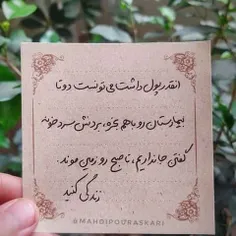 انقدر پول داشت می تونست دوتا
بیمارستان رو باهم بخره، بردنش سردخونه
گفتن جا نداریم، تا صبح رو زمین موند.
زندگی کنید
@MAHDIPOURASKARI